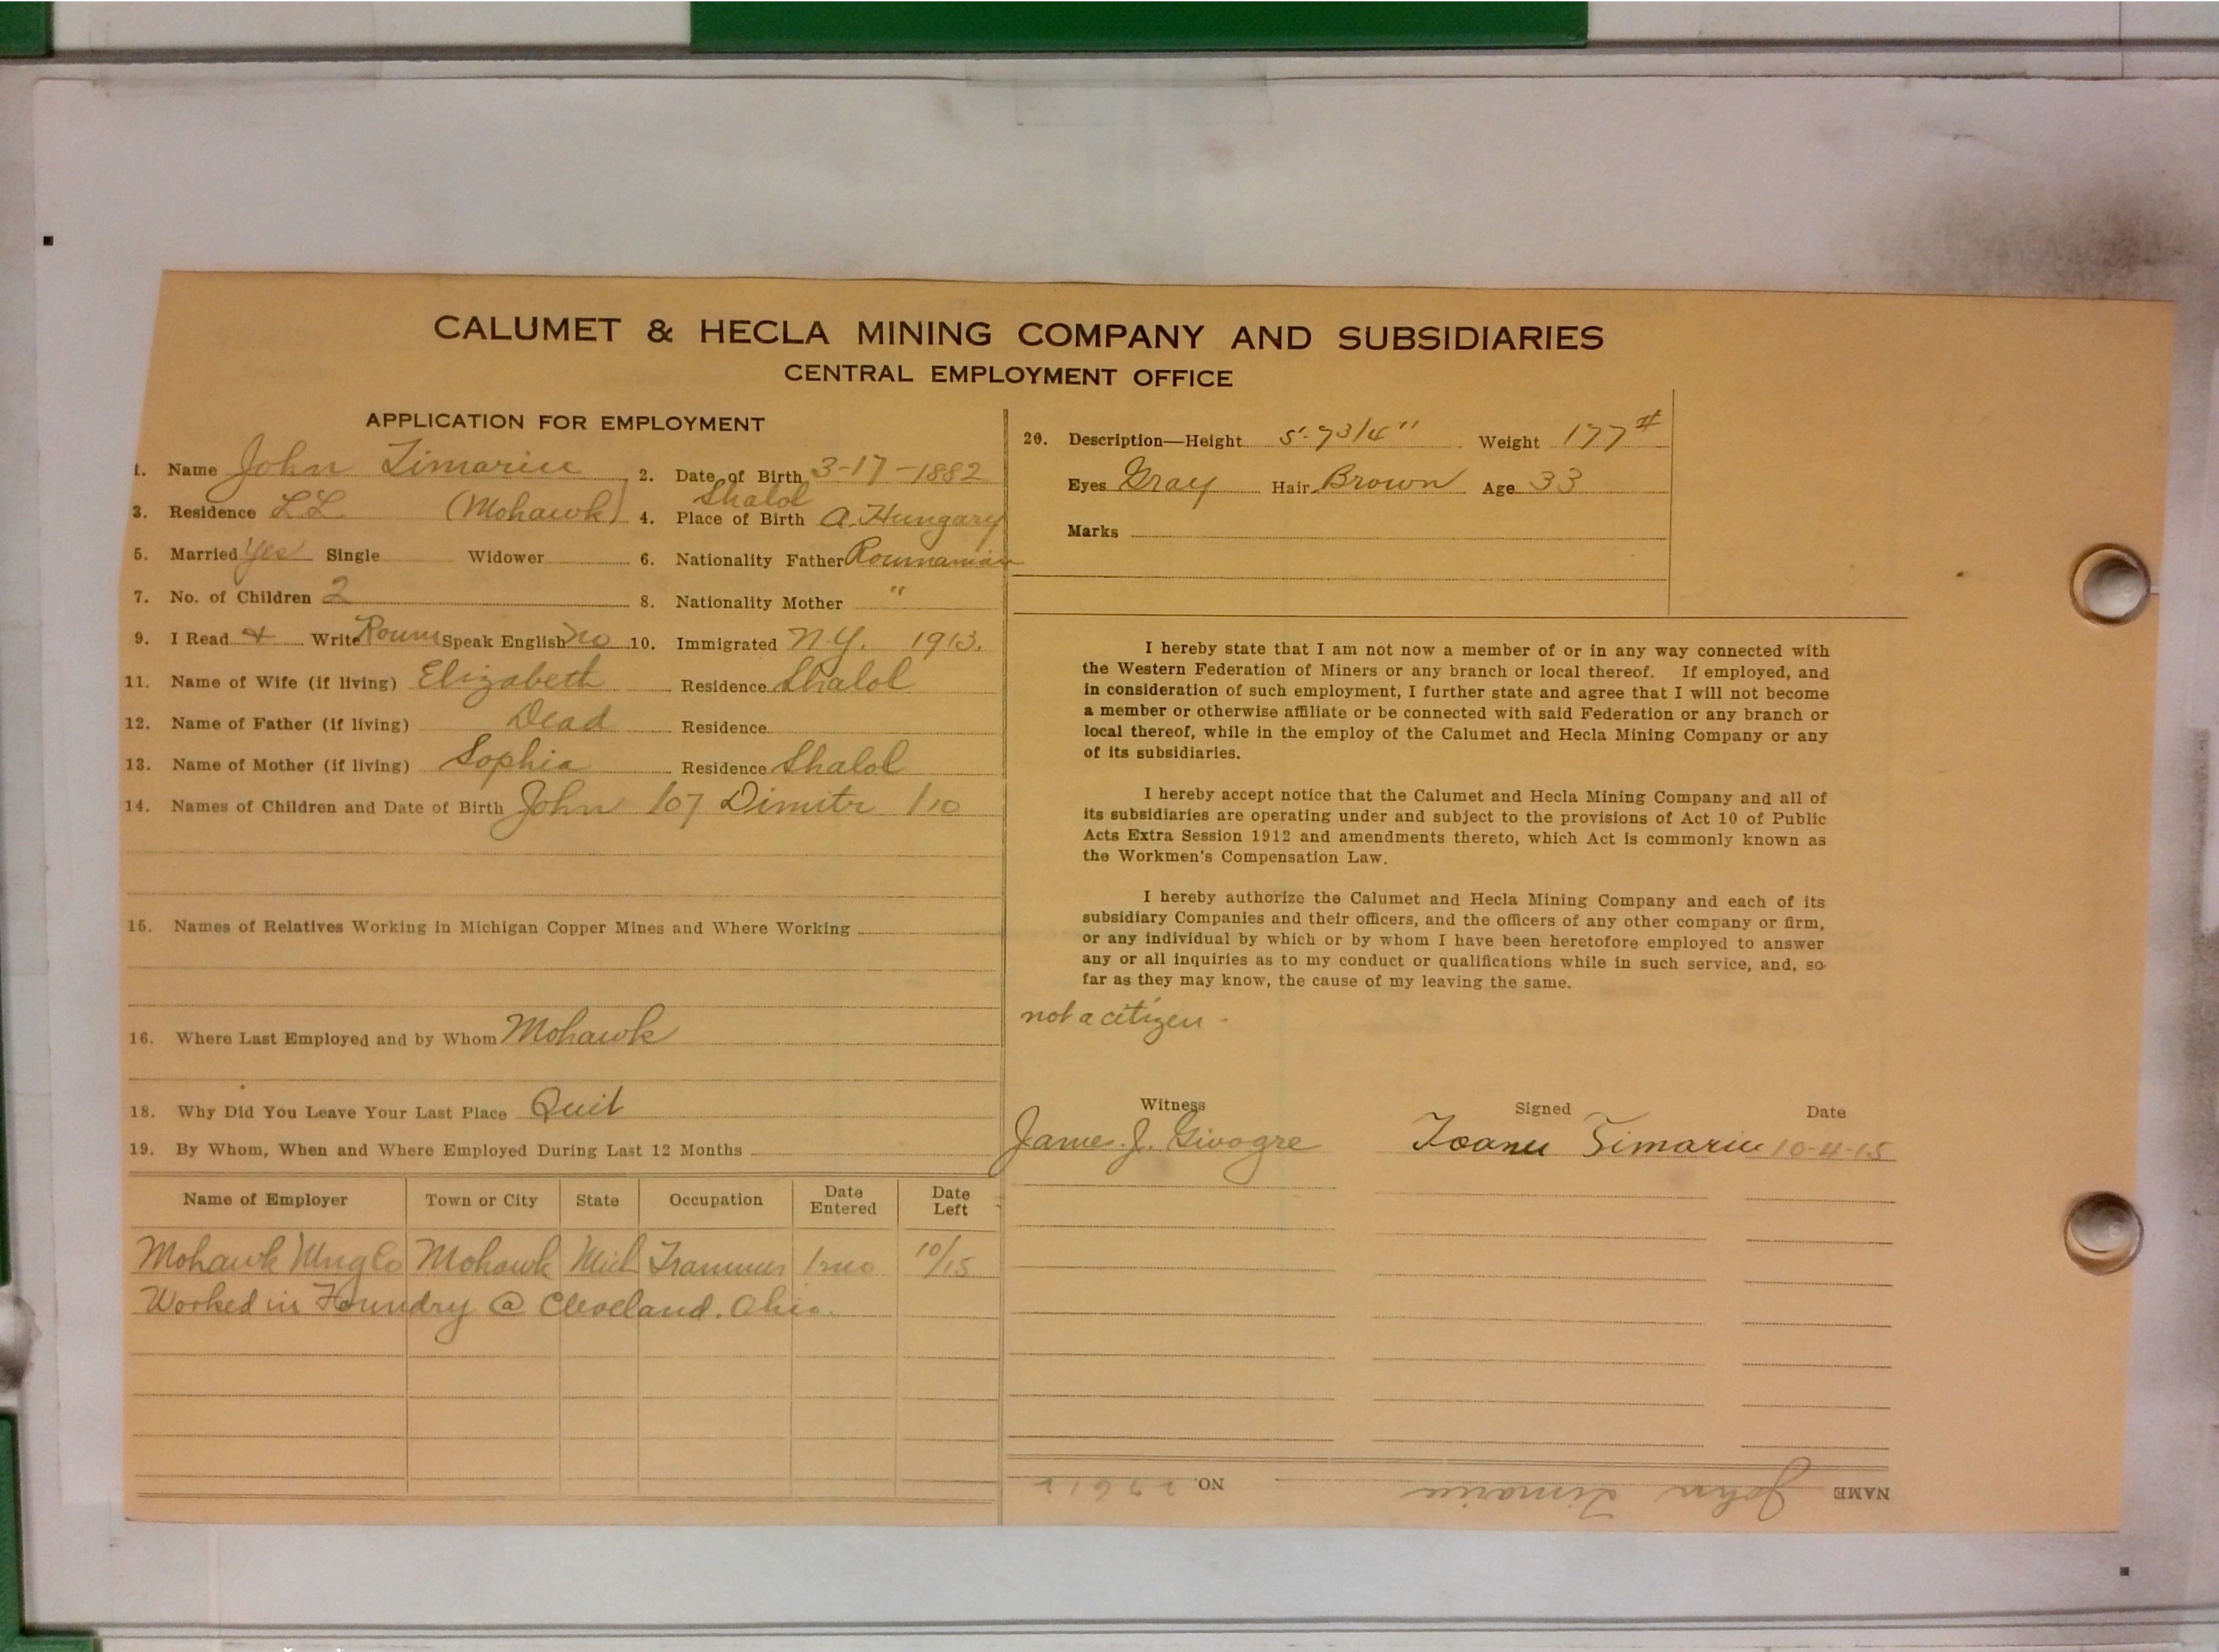 CALUMET & HECLA MINING COMPANY AND SUBSIDIARIES
CENTRAL EMPLOYMENT OFFICE
APPLICATION FOR EMPLOYMENT
1. Name John Timariu 2. Date of Birth 3-17-1882
Shalol
3. Residence L L (Mohawk) 4. Place of Birth A. Hungary
5. Married Yes Single Widower 6. Nationality Father Roumanian
7. No. of Children 2 8. Nationality Mother "
9. I Read & Write Roum Speak English no 10. Immigrated N.Y. 1913.
11. Name of Wife (if living) Elizabeth Residence Shalol
12. Name of Father (if living) Dead Residence
13. Name of Mother (if living) Sophia Residence Shalol
14. Names of Children and Date of Birth John /07 Dimitr /10
15. Names of Relatives Working in Michigan Copper Mines and Where Working
16. Where Last Employed and by Whom Mohawk
18. Why Did You Leave Your Last Place Quit
19. By Whom, When and Where Employed During Last 12 Months
Name of Employer Town or City State Occupation Date Entered Date Left
Mohawk Mng Co Mohawk Mich Trammer 1 mo 10/15
Worked in Foundry @ Cleveland. Ohio.
20. Description—Height 5'-7 3/4" Weight 177#
Eyes Gray Hair Brown Age 33
Marks
I hereby state that I am not now a member of or in any way connected with
the Western Federation of Miners or any branch or local thereof. If employed, and
in consideration of such employment, I further state and agree that I will not become
a member or otherwise affiliate or be connected with said Federation or any branch or
local thereof, while in the employ of the Calumet and Hecla Mining Company or any
of its subsidiaries.
I hereby accept notice that the Calumet and Hecla Mining Company and all of
its subsidiaries are operating under and subject to the provisions of Act 10 of Public
Acts Extra Session 1912 and amendments thereto, which Act is commonly known as
the Workmen's Compensation Law.
I hereby authorize the Calumet and Hecla Mining Company and each of its
subsidiary Companies and their officers, and the officers of any other company or firm,
or any individual by which or by whom I have been heretofore employed to answer
any or all inquiries as to my conduct or qualifications while in such service, and, so
far as they may know, the cause of my leaving the same.
not a citizen -
Witness Signed Date
James J. Ioanu Timariu 10-4-15
NAME John Timariu NO.